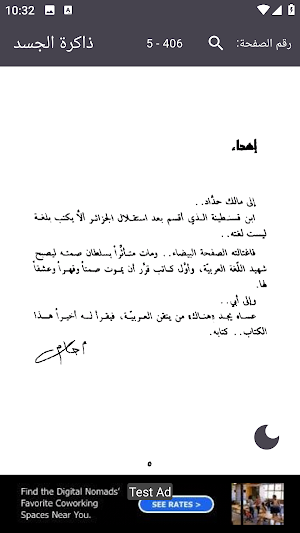 10:32
A
ذاكرة الجسد
5 - 406
رقم الصفحة:
إهداء
إلى مالك حدّاد..
ابن قسنطينة الذي أقسم بعد استقلال الجزائر ألاّ يكتب بلغة
ليست لغته..
فاغتالته الصفحة البيضاء.. ومات متأثّراً بسلطان صمته ليصبح
شهيد اللّغة العربيّة، وأوّل كاتب قرّر أن يموت صمتاً وقهراً وعشقاً
لها.
وإلى أبي..
عساه يجد «هناك» من يتقن العربيّة، فيقرأ له أخيراً هذا
الكتاب.. كتابه.
أحلام
٥
Find the Digital Nomads'
Favorite Coworking
Spaces Near You.
Test Ad
SEE RATES >